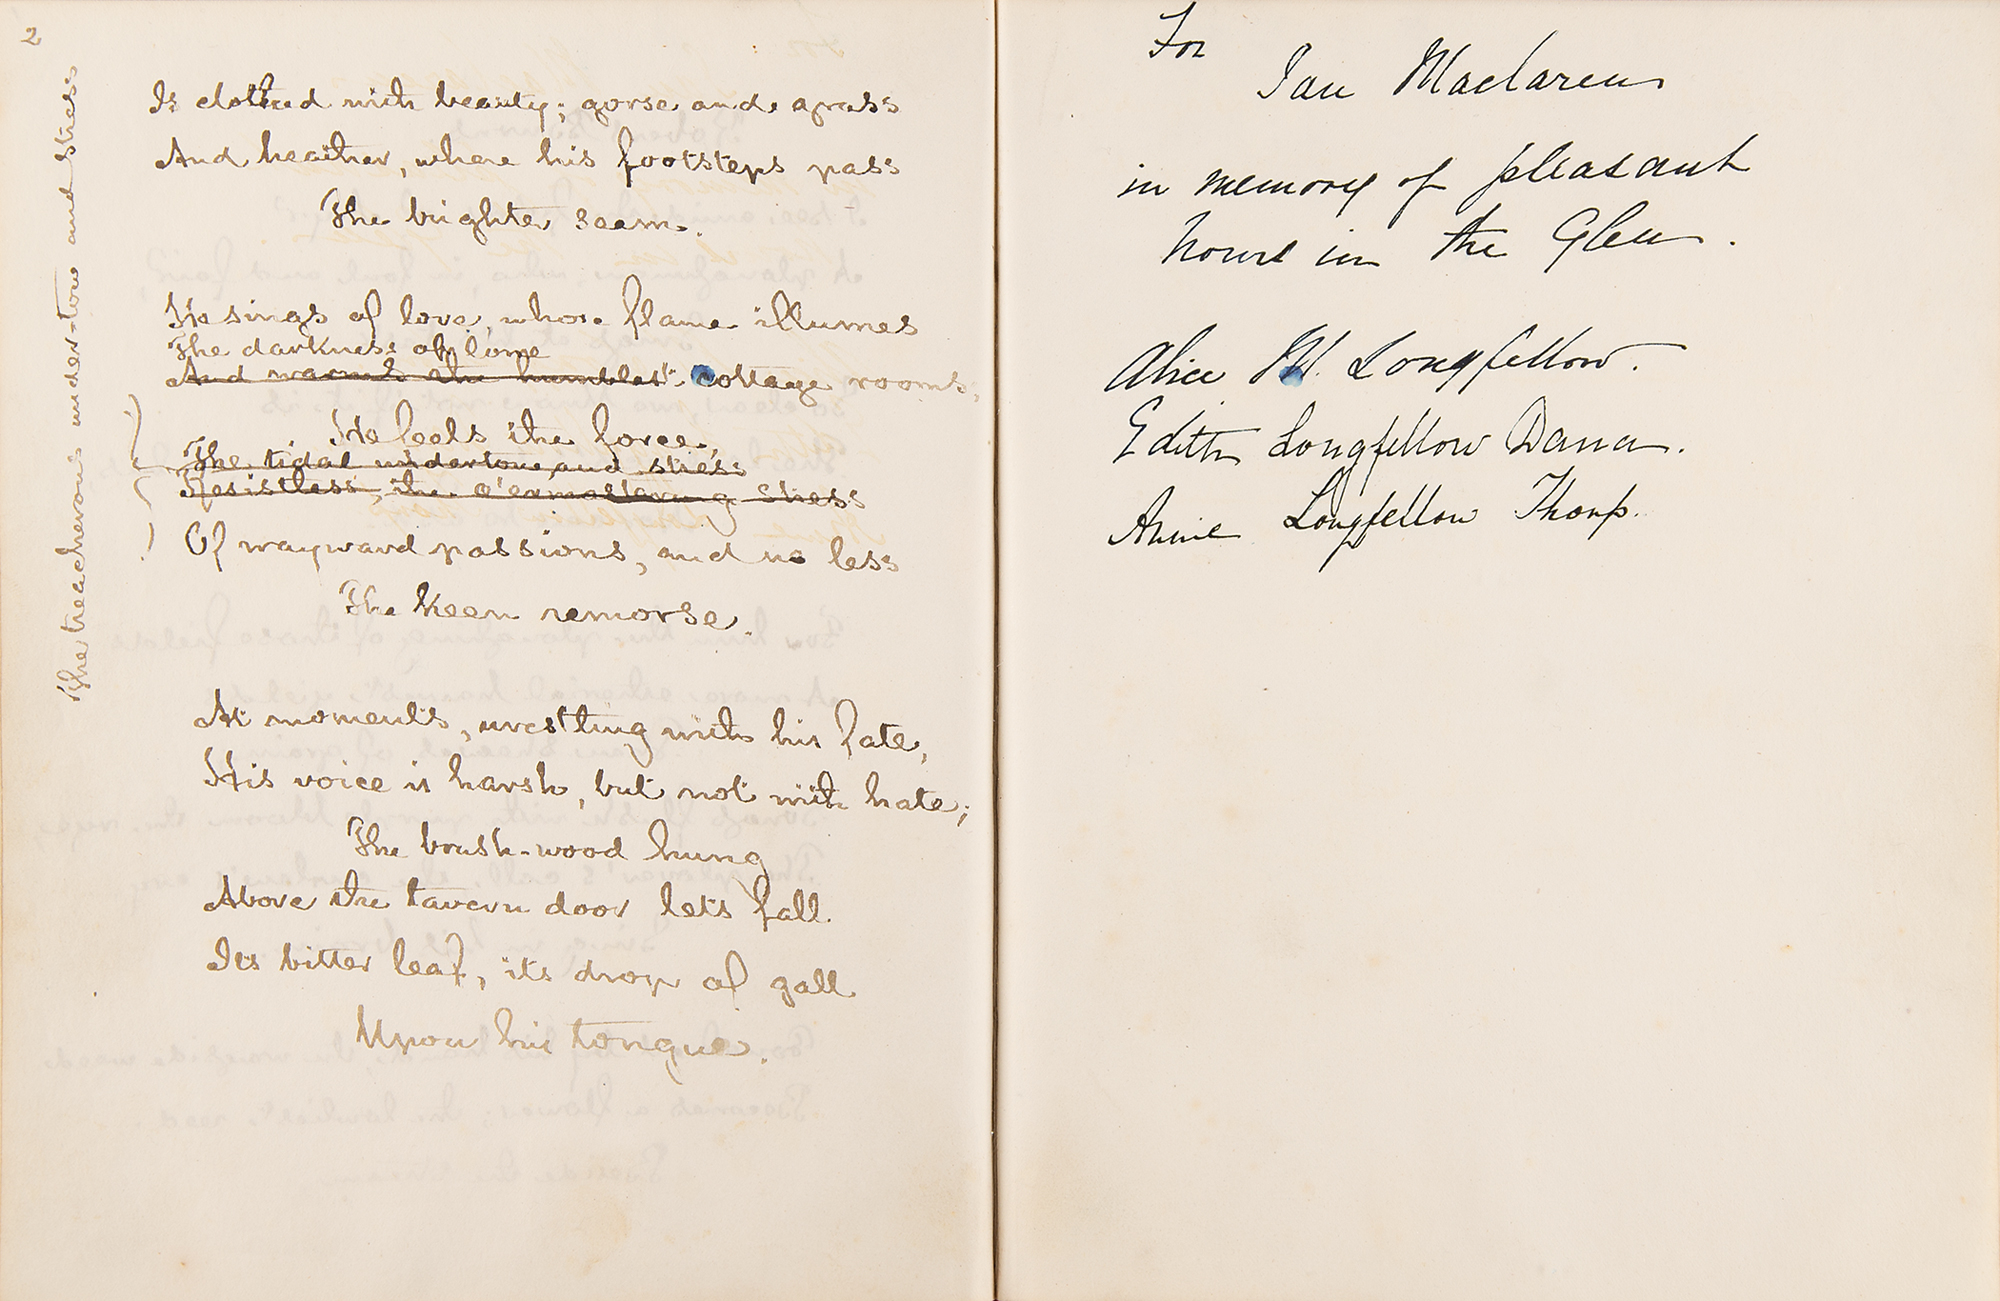 2
Is clothed with beauty; gorse and grass
And heather, where his footsteps pass
The brighter seem.
He sings of love, whose flame illumes
The darkness of lone
And warms the humblest cottage rooms;
He feels the force,
The tidal undertow and stress
Resistless, the o'ermastering stress
The treacherous under-tow and stress
Of wayward passions, and no less
The keen remorse.
At moments, wrestling with his fate,
His voice is harsh, but not with hate;
The brush-wood hung
Above the tavern door lets fall
Its bitter leaf, its drop of gall
Upon his tongue.
For
Ian Maclaren
in memory of pleasant
hours in the Glen.
Alice M. Longfellow.
Edith Longfellow Dana.
Annie Longfellow Thorp.